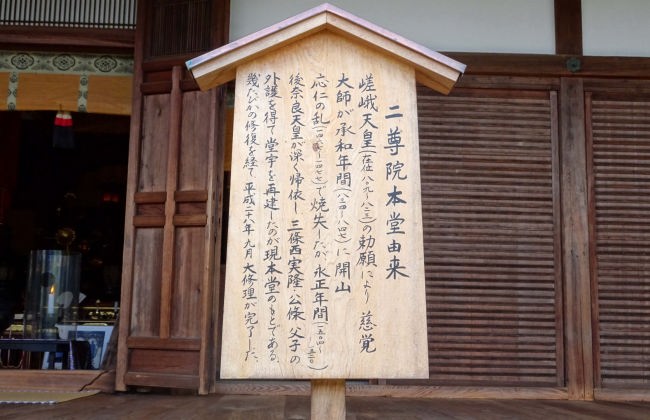 二尊院本堂由来
嵯峨天皇(在位八〇九〜八二三)の勅願により 慈覚
大師が承和年間(八三四〜八四七)に開山
応仁の乱(一四六七〜一四七七)で焼失したが 永正年間(一五〇四〜一五二〇)
後奈良天皇が深く帰依し 三條西実隆・公條 父子の
外護を得て 堂宇を再建したのが現本堂のもとである、
幾たびかの修復を経て 平成二十八年 九月 大修理が完了した、